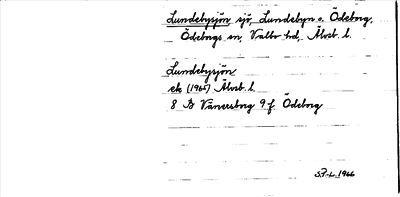 Lundebysjön, sjö, Lundebyn o. Ödeborg,
Ödeborgs sn, Valbo hd, Älvsb. l.
Lundebysjön
ek (1965) Älvsb. l.
8 B Vänersborg 9 f Ödeborg
S.P-L. 1966